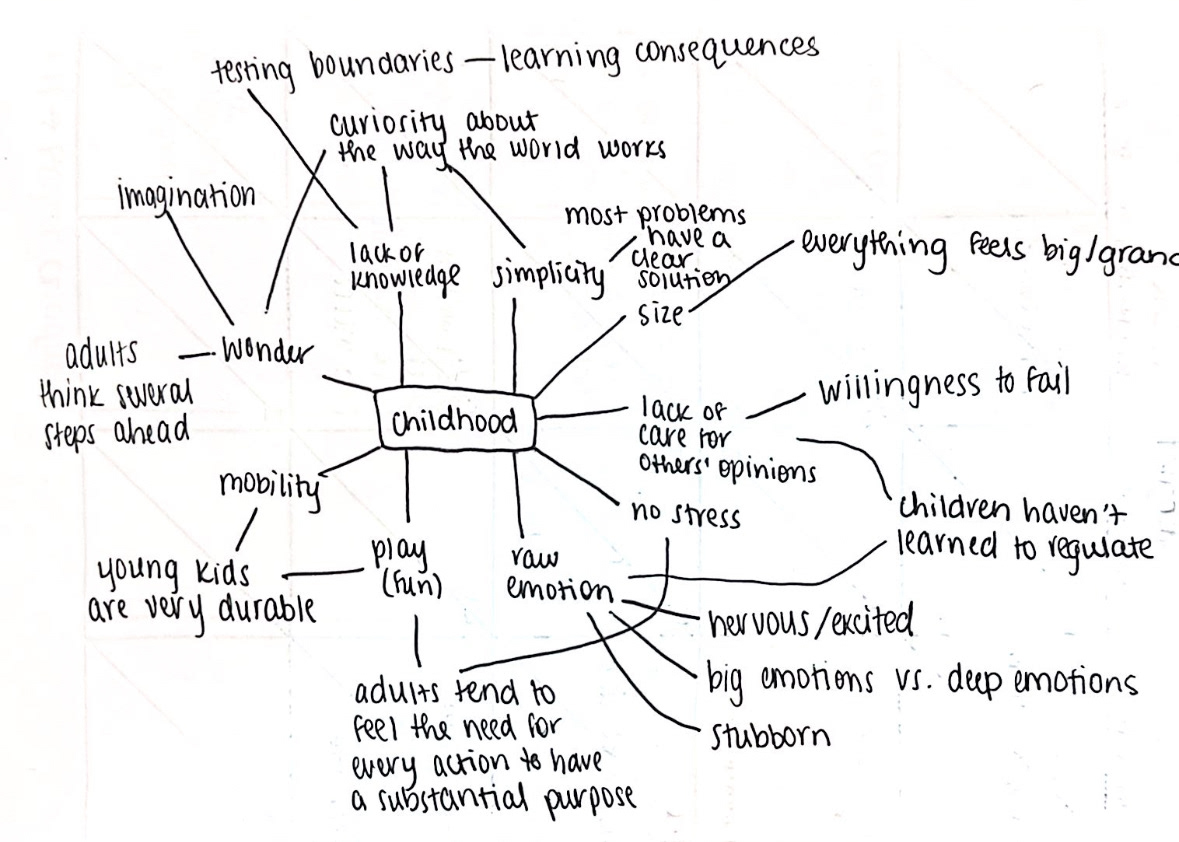 testing boundaries — learning consequences
curiosity about
the way the world works
imagination
most problems
have a
clear
solution
lack of
knowledge
simplicity
everything feels big/grand
size
adults
think several
steps ahead
wonder
childhood
willingness to fail
lack of
care for
others' opinions
mobility
no stress
children haven't
learned to regulate
young kids
are very durable
play
(fun)
raw
emotion
nervous/excited
big emotions vs. deep emotions
stubborn
adults tend to
feel the need for
every action to have
a substantial purpose